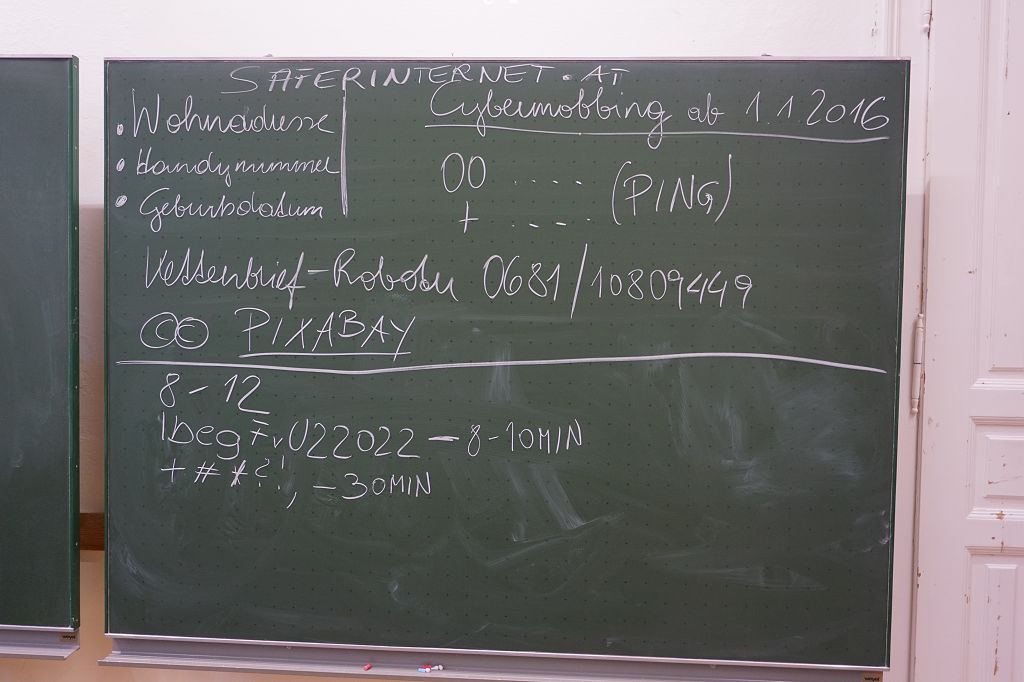 SAFERINTERNET.AT
• Wohnadresse
• Handynummer
• Geburtsdatum
Cybermobbing ab 1.1.2016
00 ..... (PING)
+ .....
Kettenbrief-Roboter 0681/10809449
CC PIXABAY
8-12
F, 022022 - 8-10MIN
+ # * ? ! , - 30MIN